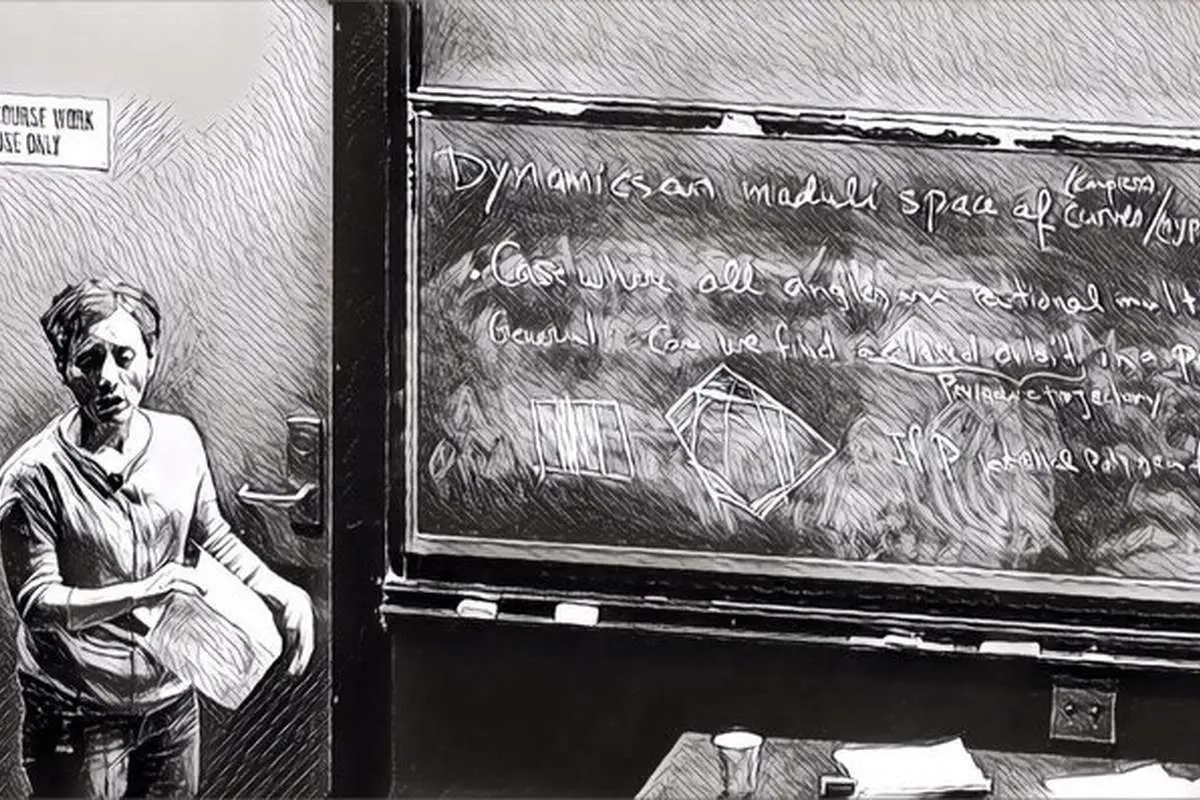 COURSE WORK
USE ONLY
Dynamics on moduli space of (complex) curves/hyp
• Case where all angles are rational mult
General: Can we find a closed orbit in a P
Periodic trajectory
If P